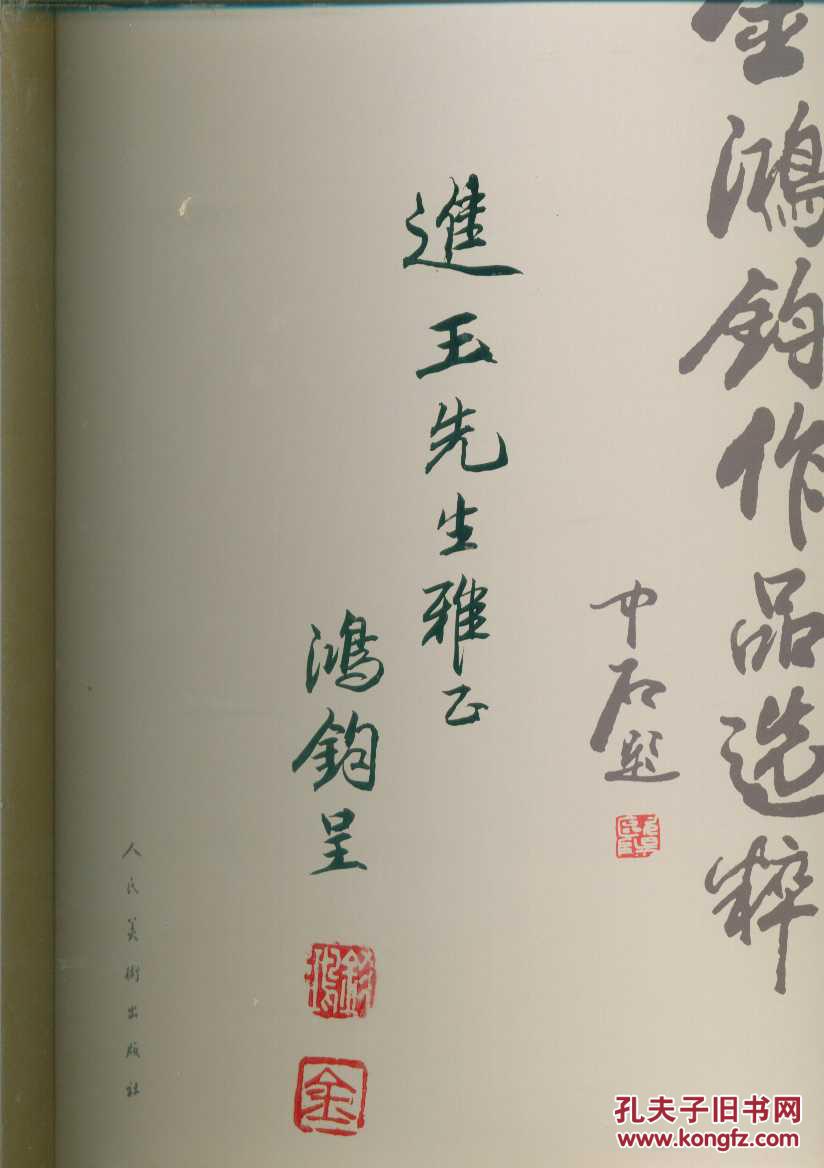 金鴻鈞作品选粹
中石題
進玉先生雅正
鴻鈞呈
鴻鈞
金
人民美術出版社
孔夫子旧书网
www.kongfz.com